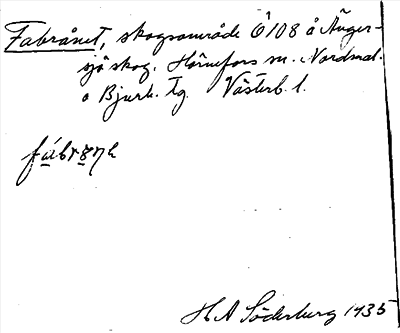 Fabrånet, skogsområde Ö108 å Ånger-
sjö skog. Hörnefors m. Nordmal.
o Bjurh. tg. Västerb. l.
H A Söderburg 1935